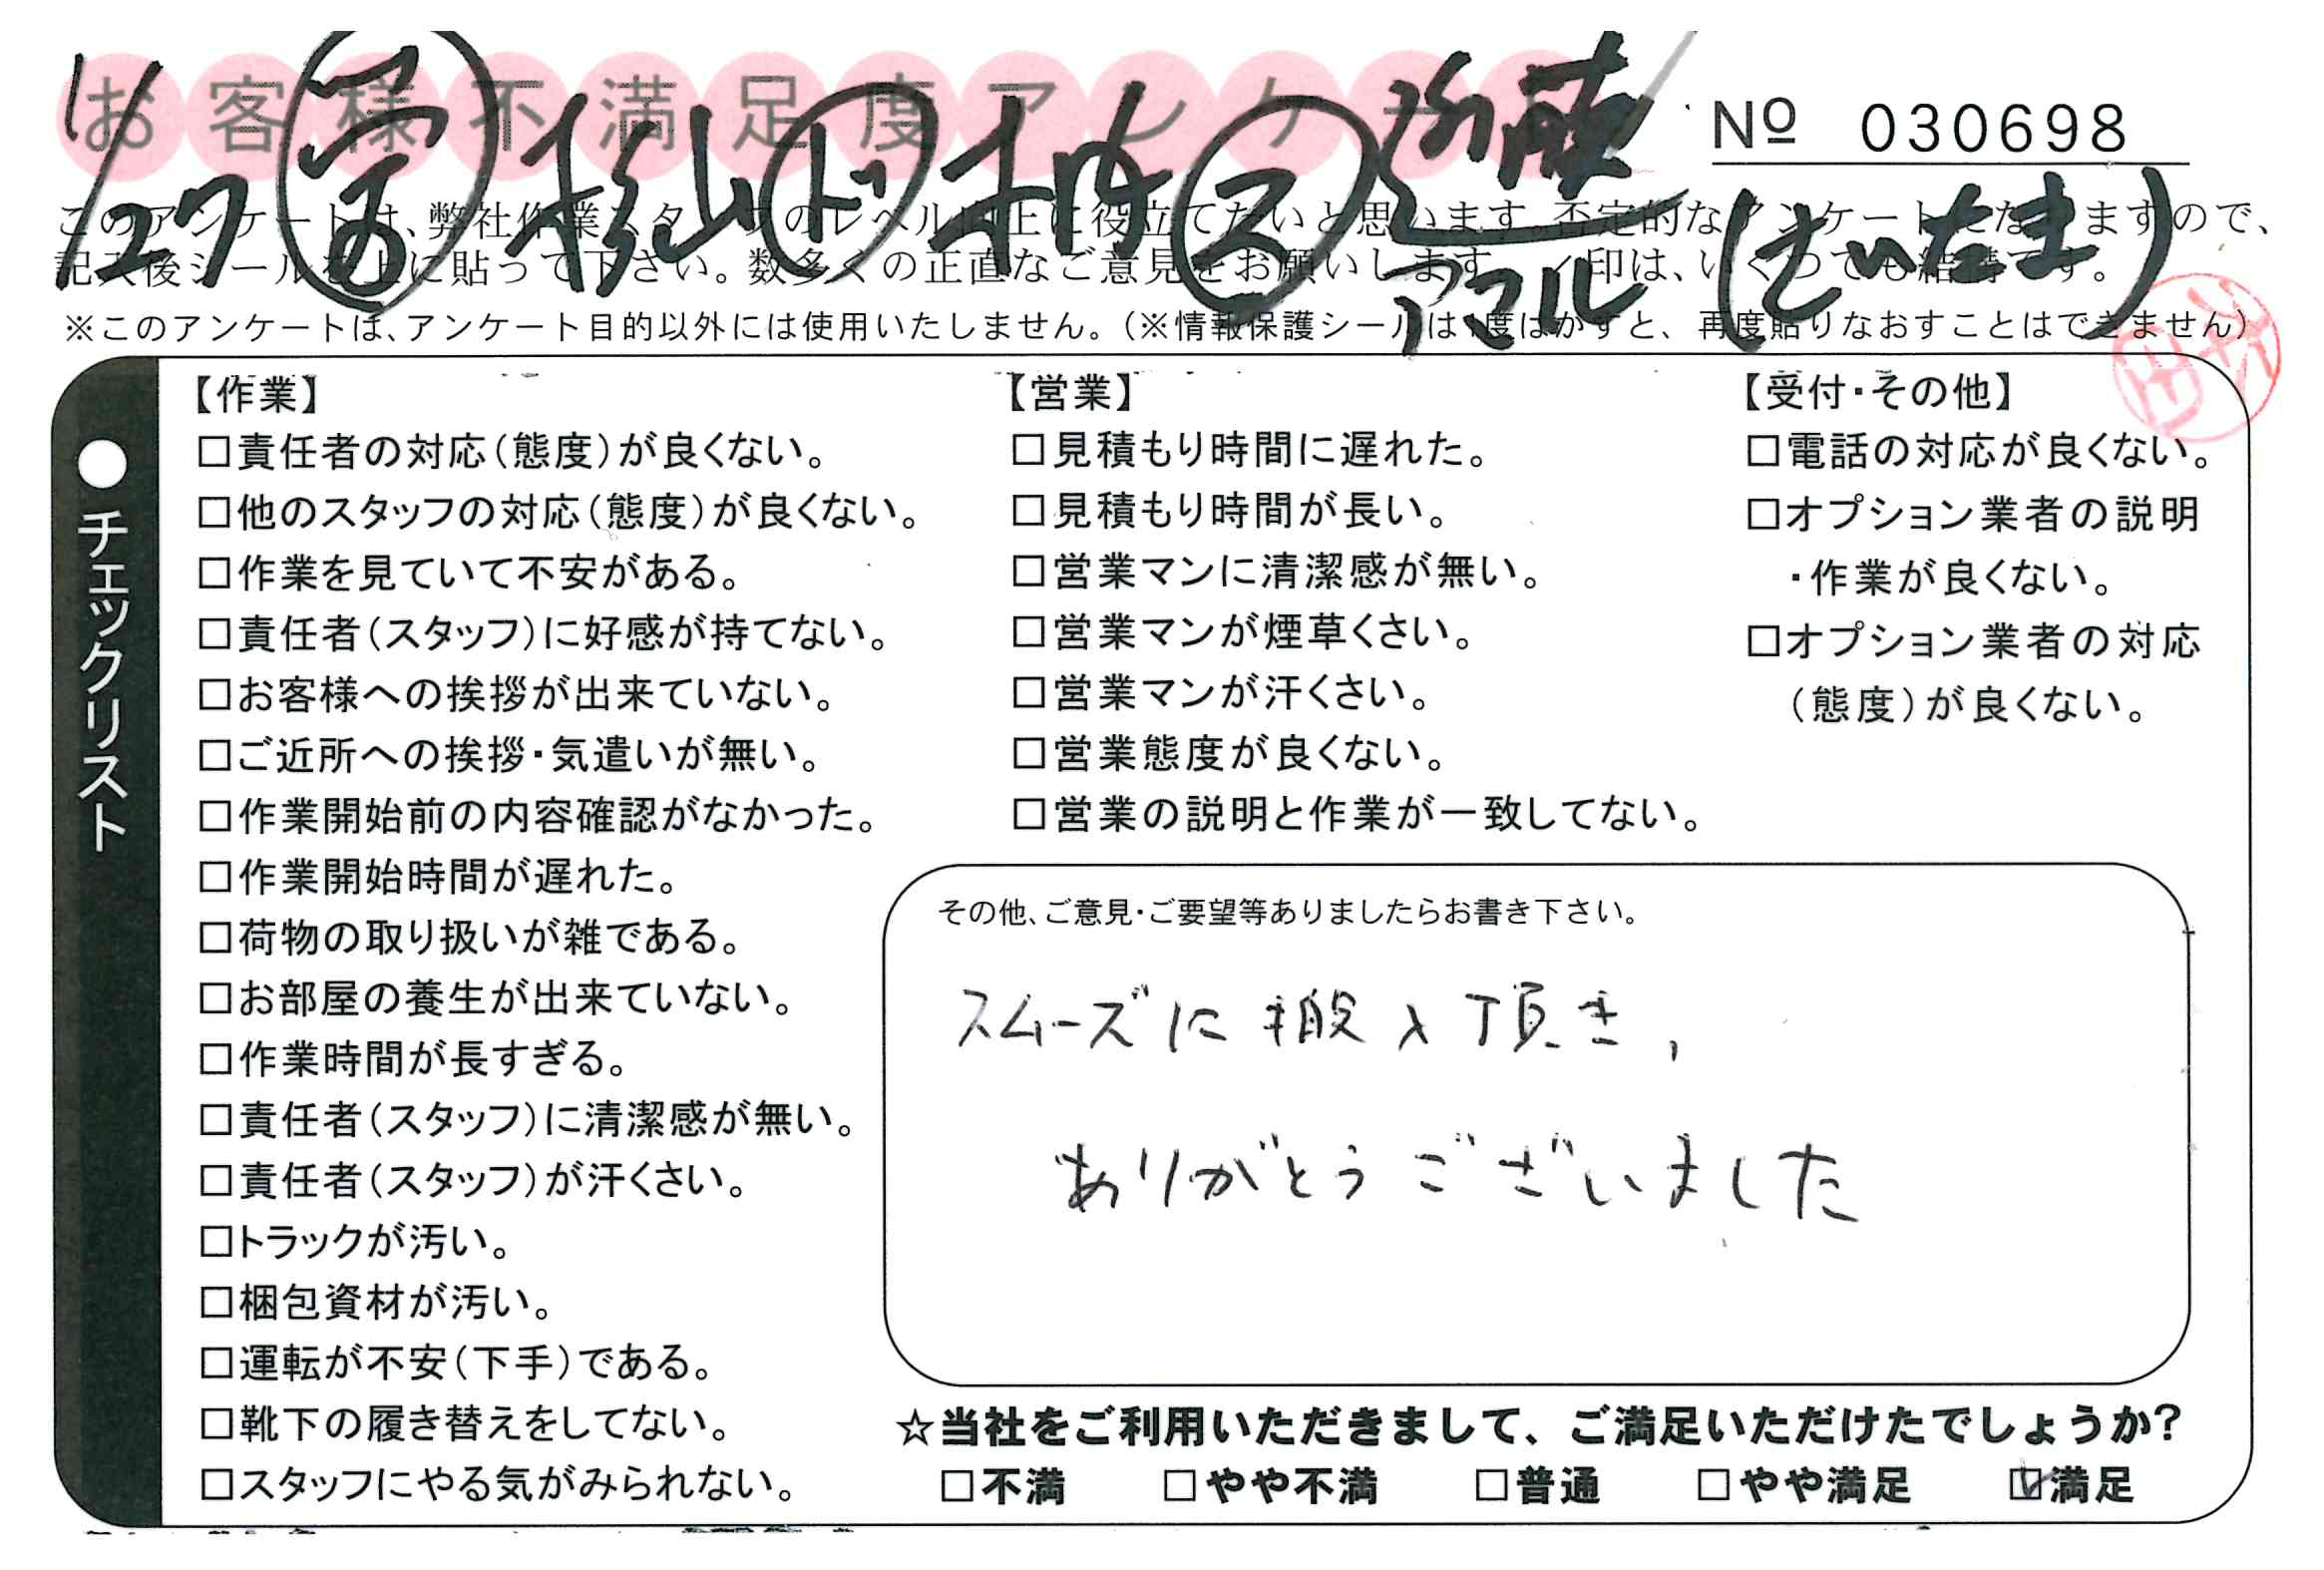 お客様不満足度アンケート
№ 030698
1/27 杉山 ド
アコム
このアンケートは、弊社作業スタッフのレベル向上に役立てたいと思います。否定的なアンケートになりますので、
記入後シールを上に貼って下さい。数多くの正直なご意見をお願いします。 印は、いくつでも結構です。
※このアンケートは、アンケート目的以外には使用いたしません。(※情報保護シールは1度はがすと、再度貼りなおすことはできません)
●チェックリスト
【作業】
□責任者の対応(態度)が良くない。
□他のスタッフの対応(態度)が良くない。
□作業を見ていて不安がある。
□責任者(スタッフ)に好感が持てない。
□お客様への挨拶が出来ていない。
□ご近所への挨拶・気遣いが無い。
□作業開始前の内容確認がなかった。
□作業開始時間が遅れた。
□荷物の取り扱いが雑である。
□お部屋の養生が出来ていない。
□作業時間が長すぎる。
□責任者(スタッフ)に清潔感が無い。
□責任者(スタッフ)が汗くさい。
□トラックが汚い。
□梱包資材が汚い。
□運転が不安(下手)である。
□靴下の履き替えをしてない。
□スタッフにやる気がみられない。
【営業】
□見積もり時間に遅れた。
□見積もり時間が長い。
□営業マンに清潔感が無い。
□営業マンが煙草くさい。
□営業マンが汗くさい。
□営業態度が良くない。
□営業の説明と作業が一致してない。
【受付・その他】
□電話の対応が良くない。
□オプション業者の説明
・作業が良くない。
□オプション業者の対応
(態度)が良くない。
その他、ご意見・ご要望等ありましたらお書き下さい。
スムーズに搬入頂き,
ありがとうございました
☆当社をご利用いただきまして、ご満足いただけたでしょうか?
□不満 □やや不満 □普通 □やや満足 ☑満足